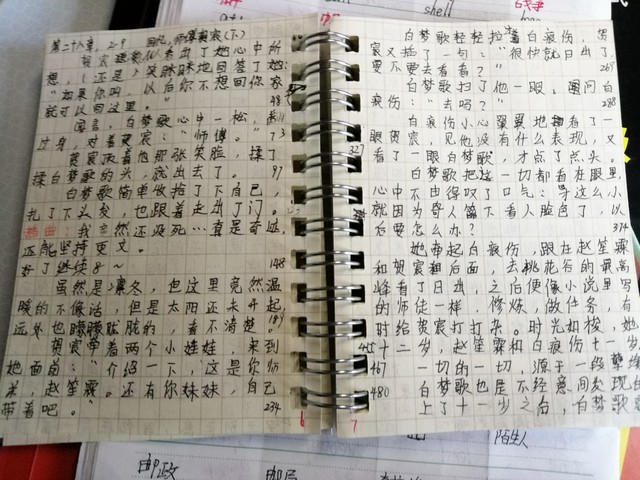 shell
第二十八章,
回忆,师尊贺宸(下)
贺宸
看出了她心中所
想,(还是)笑眯眯地回答了她:
"如果你呵,以后你不想回你家
就可以回这里。" 48
闻言,白梦歌心中一松,
过身,对着贺宸:"师傅。" 73
贺宸
看他那张笑脸,揉了
揉白梦歌的头,就出去了。 97
白梦歌简单收拾了下自己,
扎了下头发,也跟着走出了门。
我竟然还没死…真是奇迹,
还能坚持更文。
好了继续8~ 148
虽然是凛冬,但这里竟然温
暖的不像话,但是太阳还未升起,
远处也朦朦胧胧的,看不清楚。
贺宸带着两个小娃娃,来到
她面前:"介绍一下,这是你师
弟,赵笙霖。还有你妹妹,自己
带着吧。" 234
6
白梦歌轻轻拉着白哀伤,贺
宸又插了一句:"很快就日出了,
要不要去看看?" 269
白梦歌扫了他一眼,
问白
哀伤:"去吗?" 288
白哀伤小心翼翼地
看了一
眼贺宸,见他没有什么表现,又
327
看了一眼白梦歌,才点了点头。
白梦歌把这一切都看在眼里,
心中不由得叹了口气:
这么小
就因为寄人篱下看人脸色了,以
后要怎么办? 374
她带起白哀伤,跟在赵笙霖
和贺宸
后面,去桃花谷的最高
峰看了日出,之后便像小说里写
的师徒一样,修炼,做任务,有
时给贺宸打打杂。时光如梭,她
十二岁,赵笙霖和白哀伤十一岁
467
一切的一切,源于一段
480
白梦歌也是不经意间
发现
上了十一岁之后,白梦歌
7
邮政
邮局
陌生人